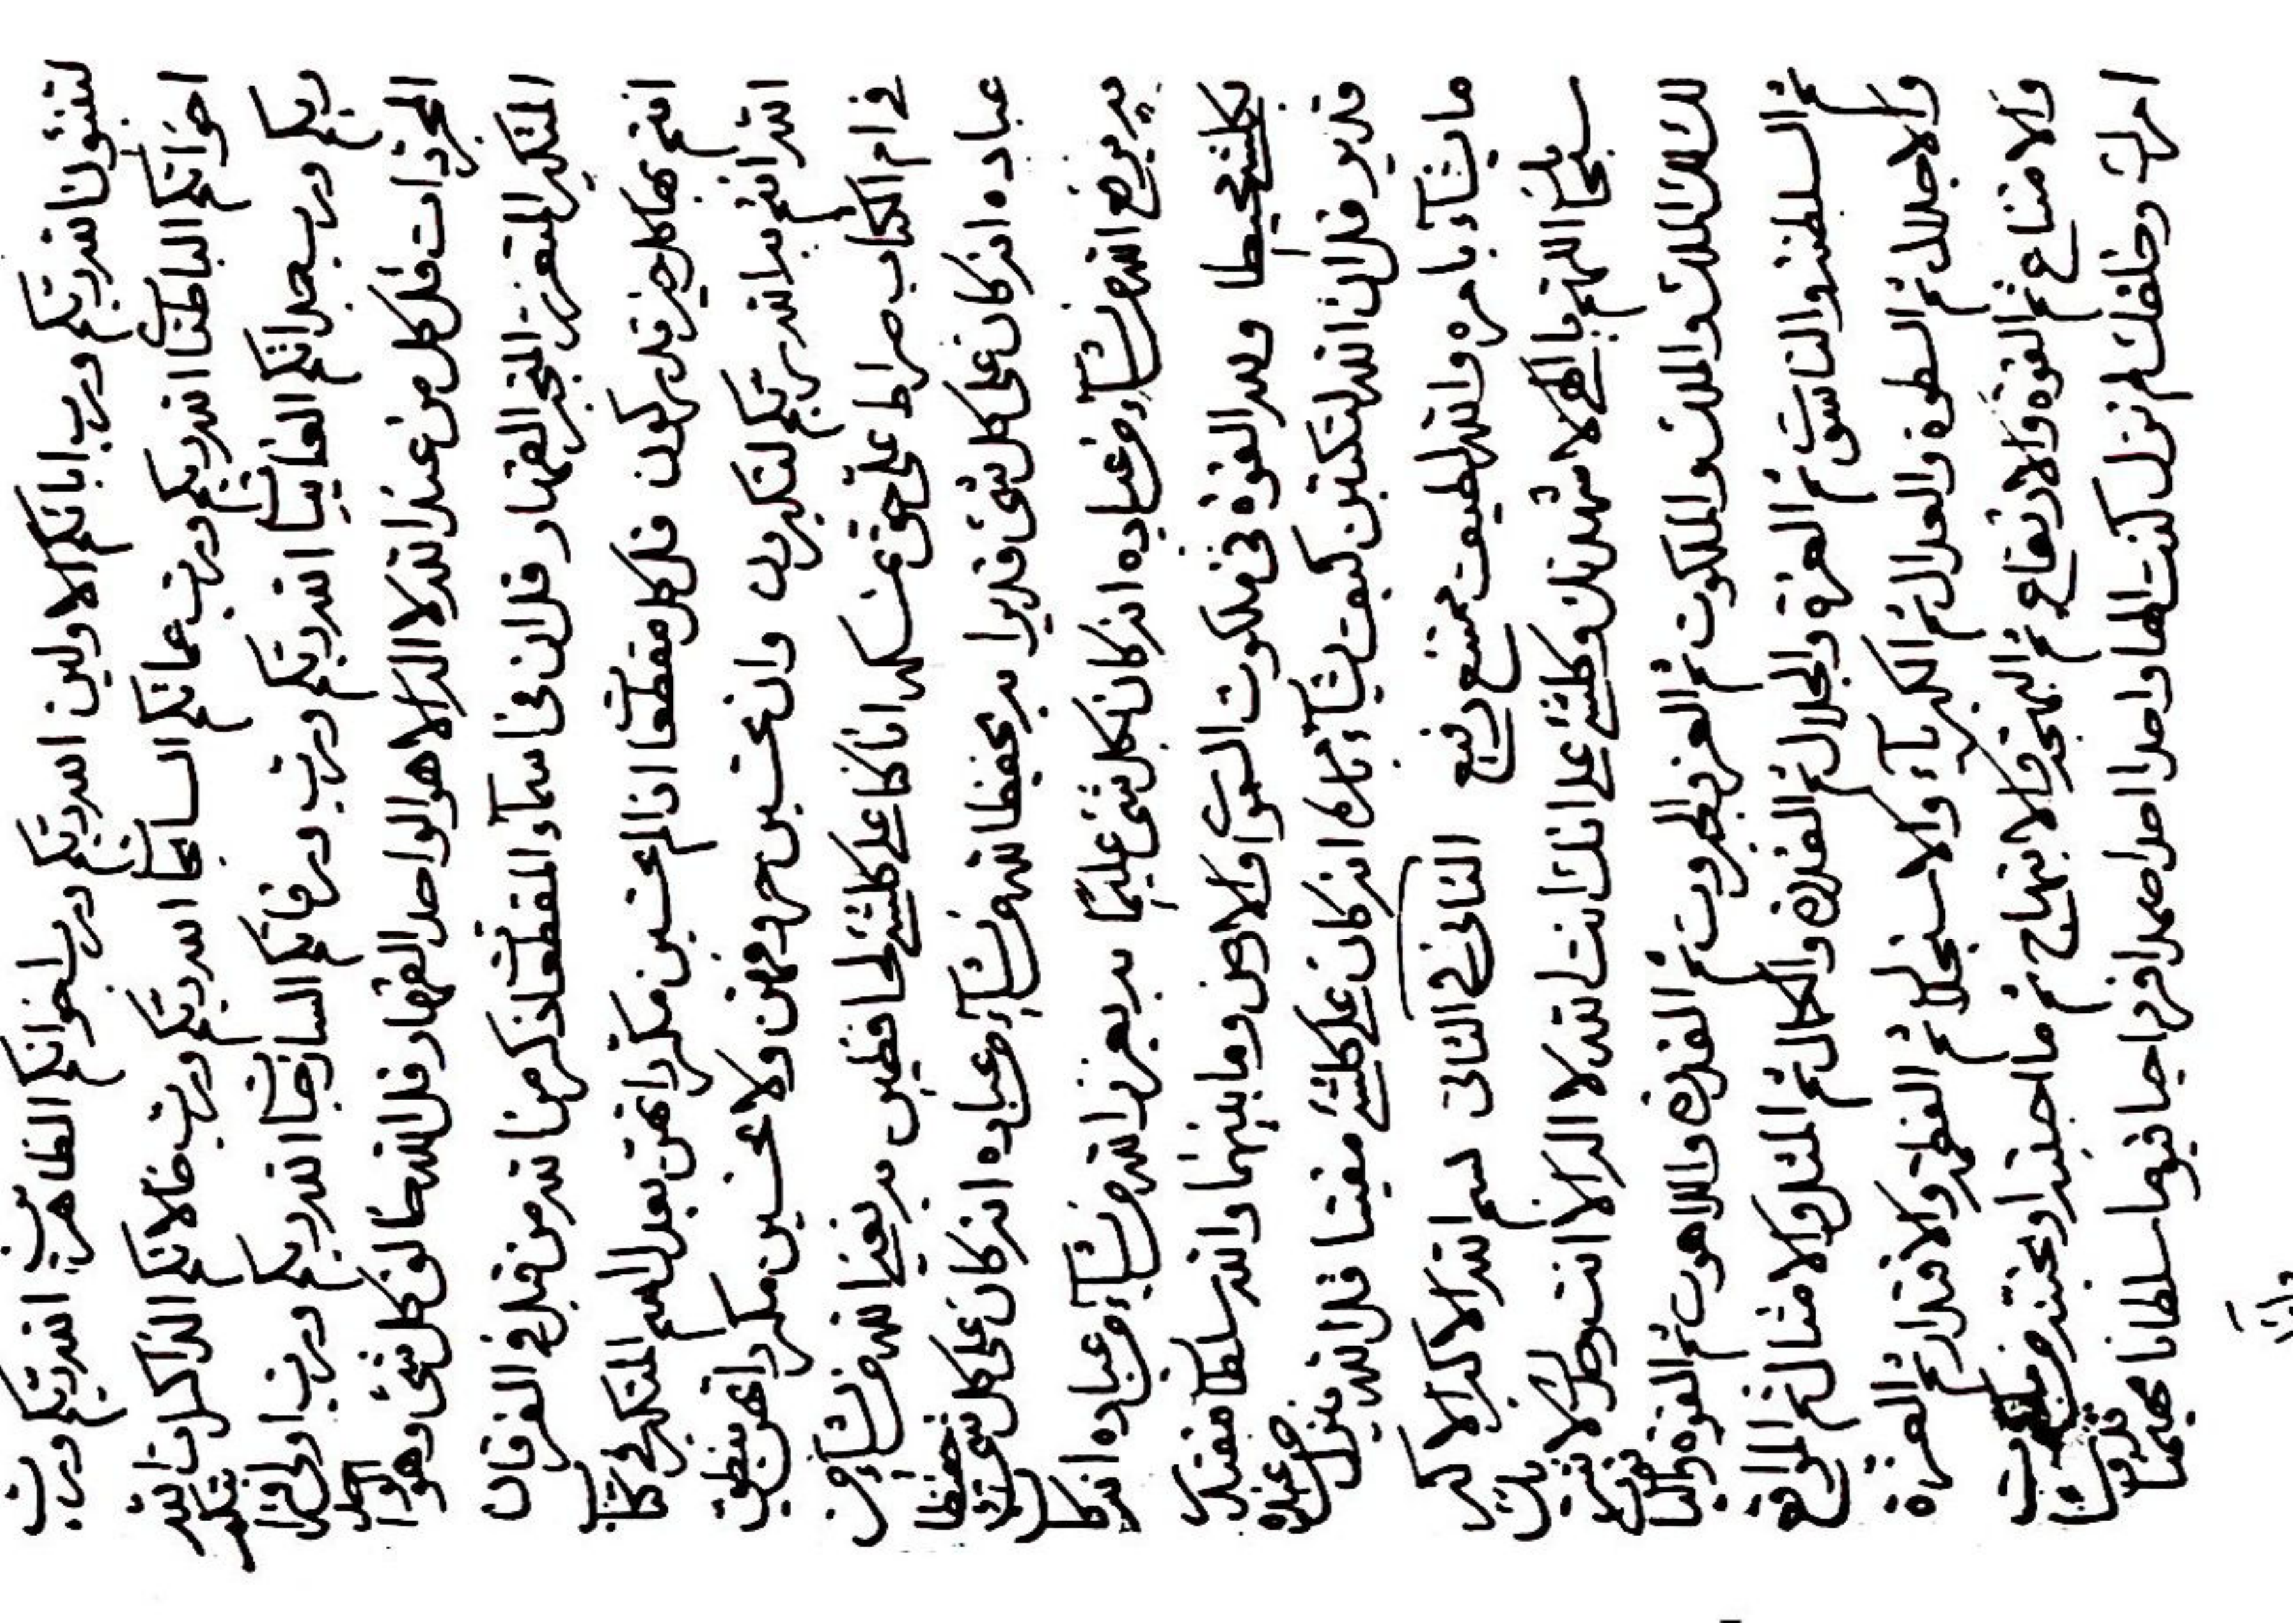 الله ربكم ورب ابائكم الاولين الله ربكم ورب اخوانكم الظاهريات الله ربكم ورب
اخواتكم الباطنيات الله ربكم ورب عماتكم السابحات الله ربكم ورب خالاتكم الذاكرات الله
ربكم ورب جداتكم الغانيات الله ربكم ورب رفاتكم السازجيات الله ربكم ورب اولى
المجردات قل كل من عند الله لا اله الا هو الواحد القهار قل الله خالق كل شئ وهو
المتكبر المتعزز المتجبر القهار قل ان فى اسماء المقطعات لذكر من الله من قبل فى الفرقان
انتم بها كل خير تدركون قل كل مقطعا اذا لم تحسبن مكررا تهن بعد اسم المتكبر فى كتاب
الله انتم بالله ربكم لتكبرون وان تحسبن حروفهن ولا تحسبن مكرراتهن ينطق
فى ام الكتاب صراط على حق نمسكه انا كنا على كلشئ لحافظين بديغيث الله من يشاء من
عباده انه كان على كل شئ قديرا يد يحفظ الله من يشاء من عباده انه كان على كل شئ حفيظا
يد يرفع الله من يشاء من عباده انه كان بكل شئ عليما يد يعزز الله من يشاء من عباده انه كان
بكلشئ محيطا ولله القوة فى ملكوت السموات والارض وما بينهما والله سلطان مقتدر
قدير قل ان الله لتكتبن كيف يشاء بامره انه كان على كلشئ مقيتا قل الله ينزل
ما يشاء بامره والله لطيف ممتنع رفيع الثانى فى الثانى بسم الله الاكبر الاكبر
سبحانك اللهم يا الهى لاشهدنك وكلشئ على انك انت الله لا اله الا انت وحدك لا شريك
لك لك الملك والملكوت ثم العز والجبروت ثم القدرة واللاهوت ثم القوة والياقوت
ثم السلطنة والناسوت ثم العزة والجلال ثم القدرة والكمال ثم المثل والامثال ثم المواقع
والاجلال ثم السطوة والعدال ثم الكبرياء والاستجلال ثم العظمة والاقتدار ثم العزة
والامتناع ثم القوة والارتفاع ثم البهجة والابتهاج ثم ما احببته او تحبنه من ملكوت
امرك وخلقك لم تزل كنت الها واحدا احدا صمدا فردا حيا قيوما سلطانا مهيمنا قدوسا